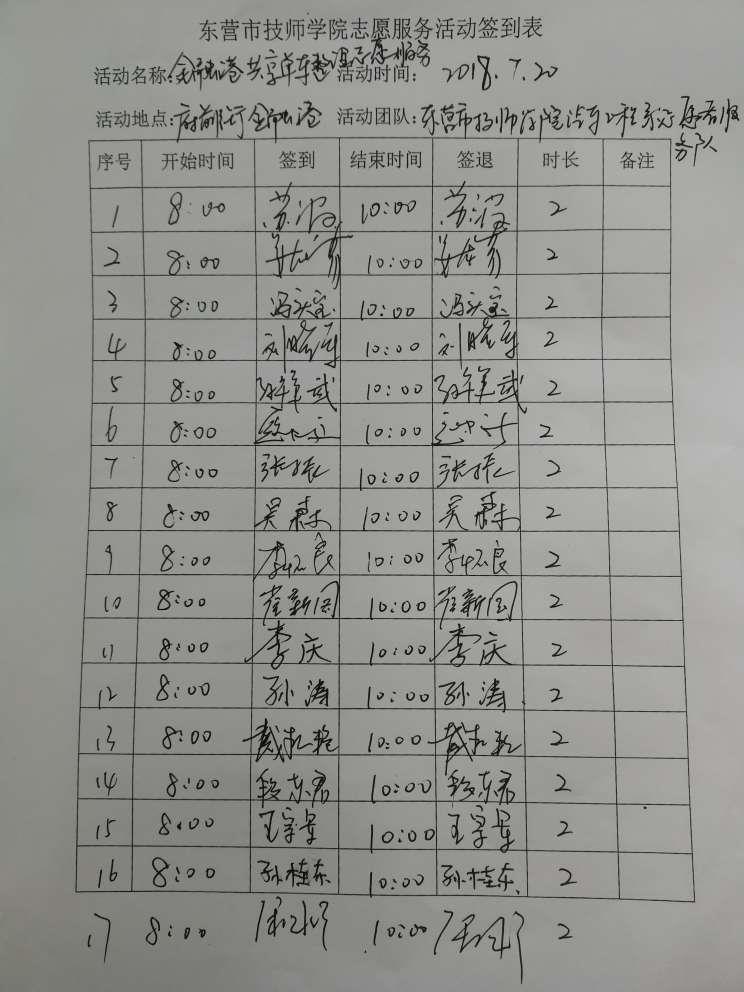 东营市技师学院志愿服务活动签到表
活动名称:金融港共享单车整理志愿服务 活动时间: 2018.7.20
活动地点:府前街金融港 活动团队:东营市技师学院汽车工程系志愿者服务队
序号 开始时间 签到 结束时间 签退 时长 备注
1 8:00 苏波 10:00 苏波 2
2 8:00 10:00 2
3 8:00 冯庆宝 10:00 冯庆宝 2
4 8:00 刘晓军 10:00 刘晓军 2
5 8:00 10:00 2
6 8:00 10:00 2
7 8:00 张振 10:00 张振 2
8 8:00 吴 10:00 吴 2
9 8:00 10:00 2
10 8:00 崔新国 10:00 崔新国 2
11 8:00 李庆 10:00 李庆 2
12 8:00 孙涛 10:00 孙涛 2
13 8:00 10:00 2
14 8:00 段东君 10:00 段东君 2
15 8:00 10:00 2
16 8:00 孙桂东 10:00 孙桂东 2
17 8:00 10:00 2